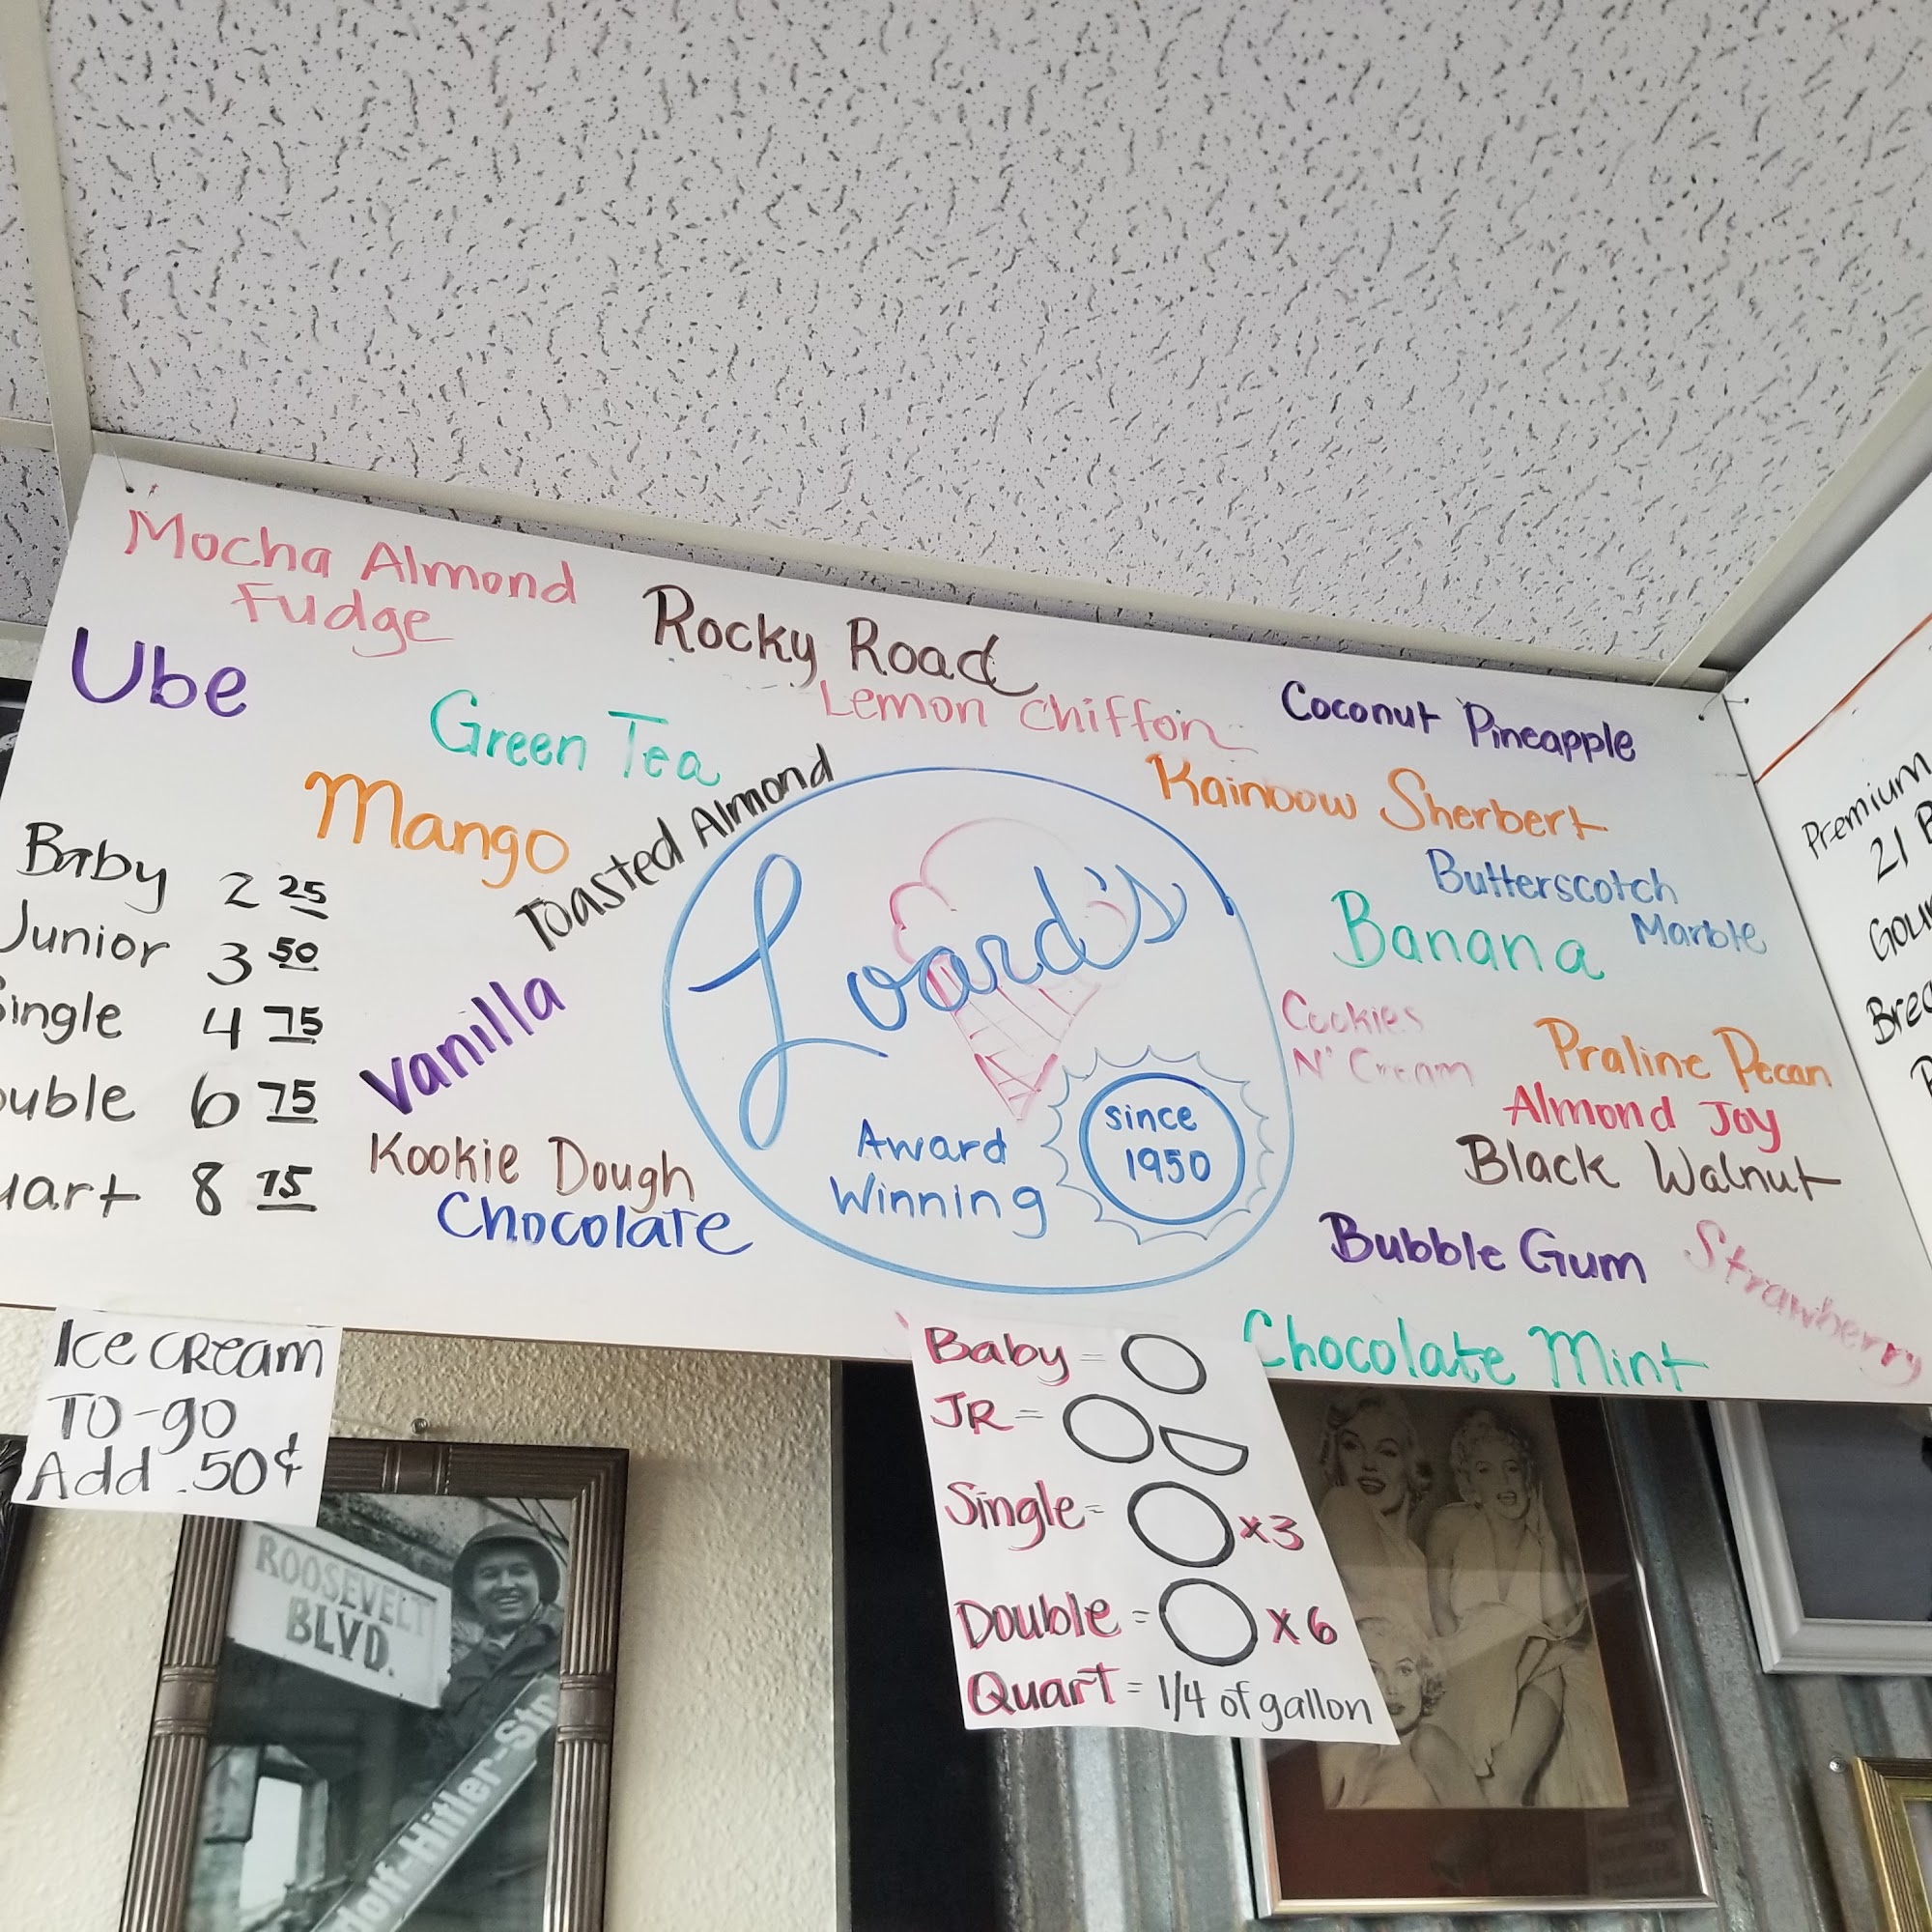 Mocha Almond
Fudge
Rocky Road
Ube
Lemon Chiffon
Coconut Pineapple
Green Tea
Mango
Toasted Almond
Rainbow Sherbert
Butterscotch
Marble
Banana
Baby 2 25
Junior 3 50
Single 4 75
ouble 6 75
uart 8 75
Vanilla
Kookie Dough
Chocolate
Loard's
Award
Winning
since
1950
Cookies
N' Cream
Praline Pecan
Almond Joy
Black Walnut
Bubble Gum
Strawberry
Chocolate Mint
Premium
21
Ice cream
TO-go
Add .50¢
Baby =
JR =
Single = x3
Double = x 6
Quart = 1/4 of gallon
ROOSEVELT
BLVD.
dolf-Hitler-Str